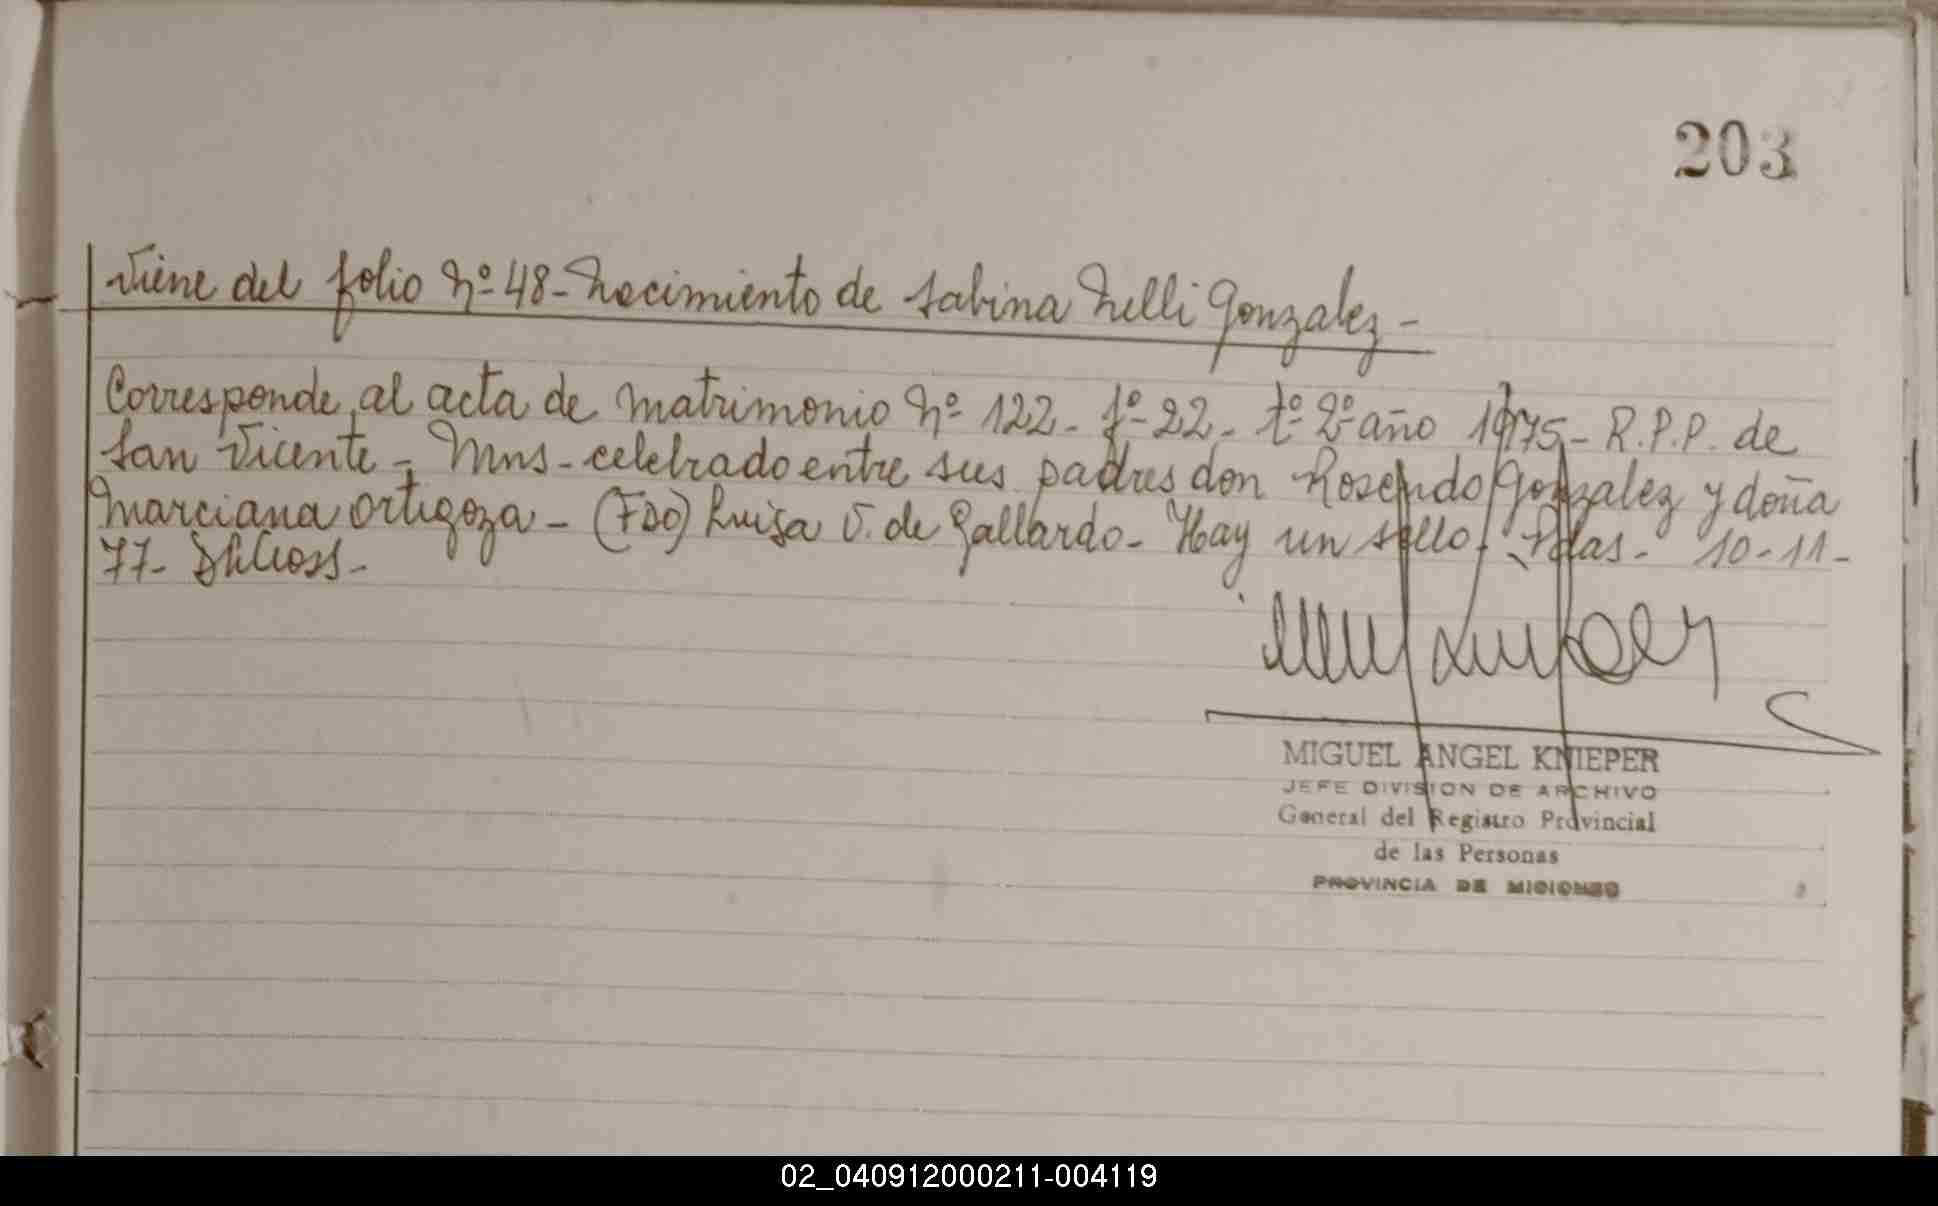 203
Viene del folio Nº 48 - Nacimiento de Sabina Nelli Gonzalez -
Corresponde al acta de matrimonio Nº 122 - fº 22 - tº 2º año 1975 - R.P.P. de
San Vicente - Mns - celebrado entre sus padres don Rosendo Gonzalez y doña
Marciana Ortigoza - (FDO) Luisa V. de Gallardo - Hay un sello - Pdas - 10-11-
77-
MIGUEL ANGEL KNIEPER
JEFE DIVISION DE ARCHIVO
General del Registro Provincial
de las Personas
PROVINCIA DE MISIONES
02_040912000211-004119